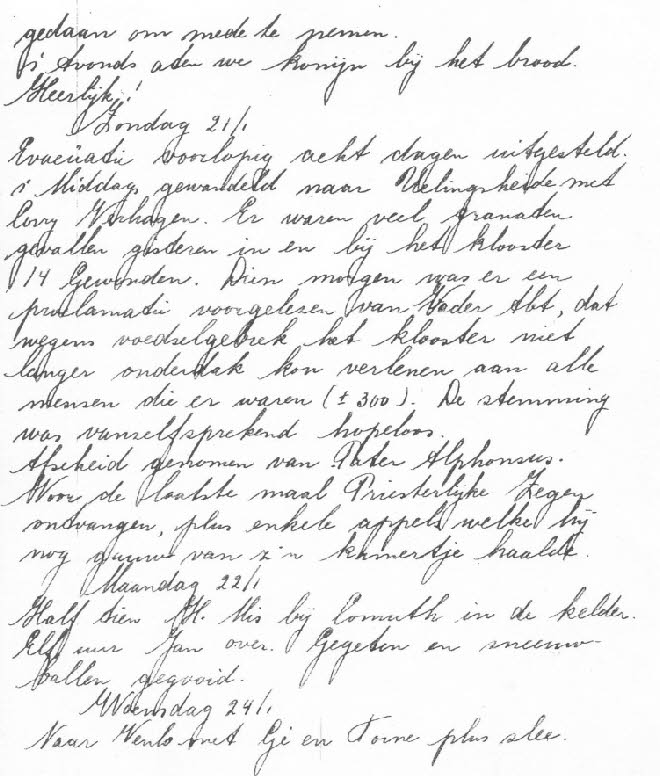 gedaan om mede te nemen.
's Avonds aten we konijn bij het brood.
Heerlijk!
Zondag 21/1
Evacuatie voorlopig acht dagen uitgesteld.
's Middag gewandeld naar Ulingsheide met
Corry Verhagen. Er waren veel granaten
gevallen gisteren in en bij het klooster
14 Gewonden. Dien morgen was er een
proclamatie voorgelezen van Vader Abt, dat
wegens voedselgebrek het klooster niet
langer onderdak kon verlenen aan alle
mensen die er waren (± 300). De stemming
was vanselfsprekend hopeloos.
Afscheid genomen van Pater Alphonsus.
Voor de laatste maal Priesterlijke Zegen
ontvangen, plus enkele appels welke hij
nog gauw van z'n kamertje haalde.
Maandag 22/1
Half tien H. Mis bij in de kelder.
Elf uur Jan over. Gegeten en sneeuw-
ballen gegooid.
Woensdag 24/1
Naar Venlo met Gé en Toine plus slee.